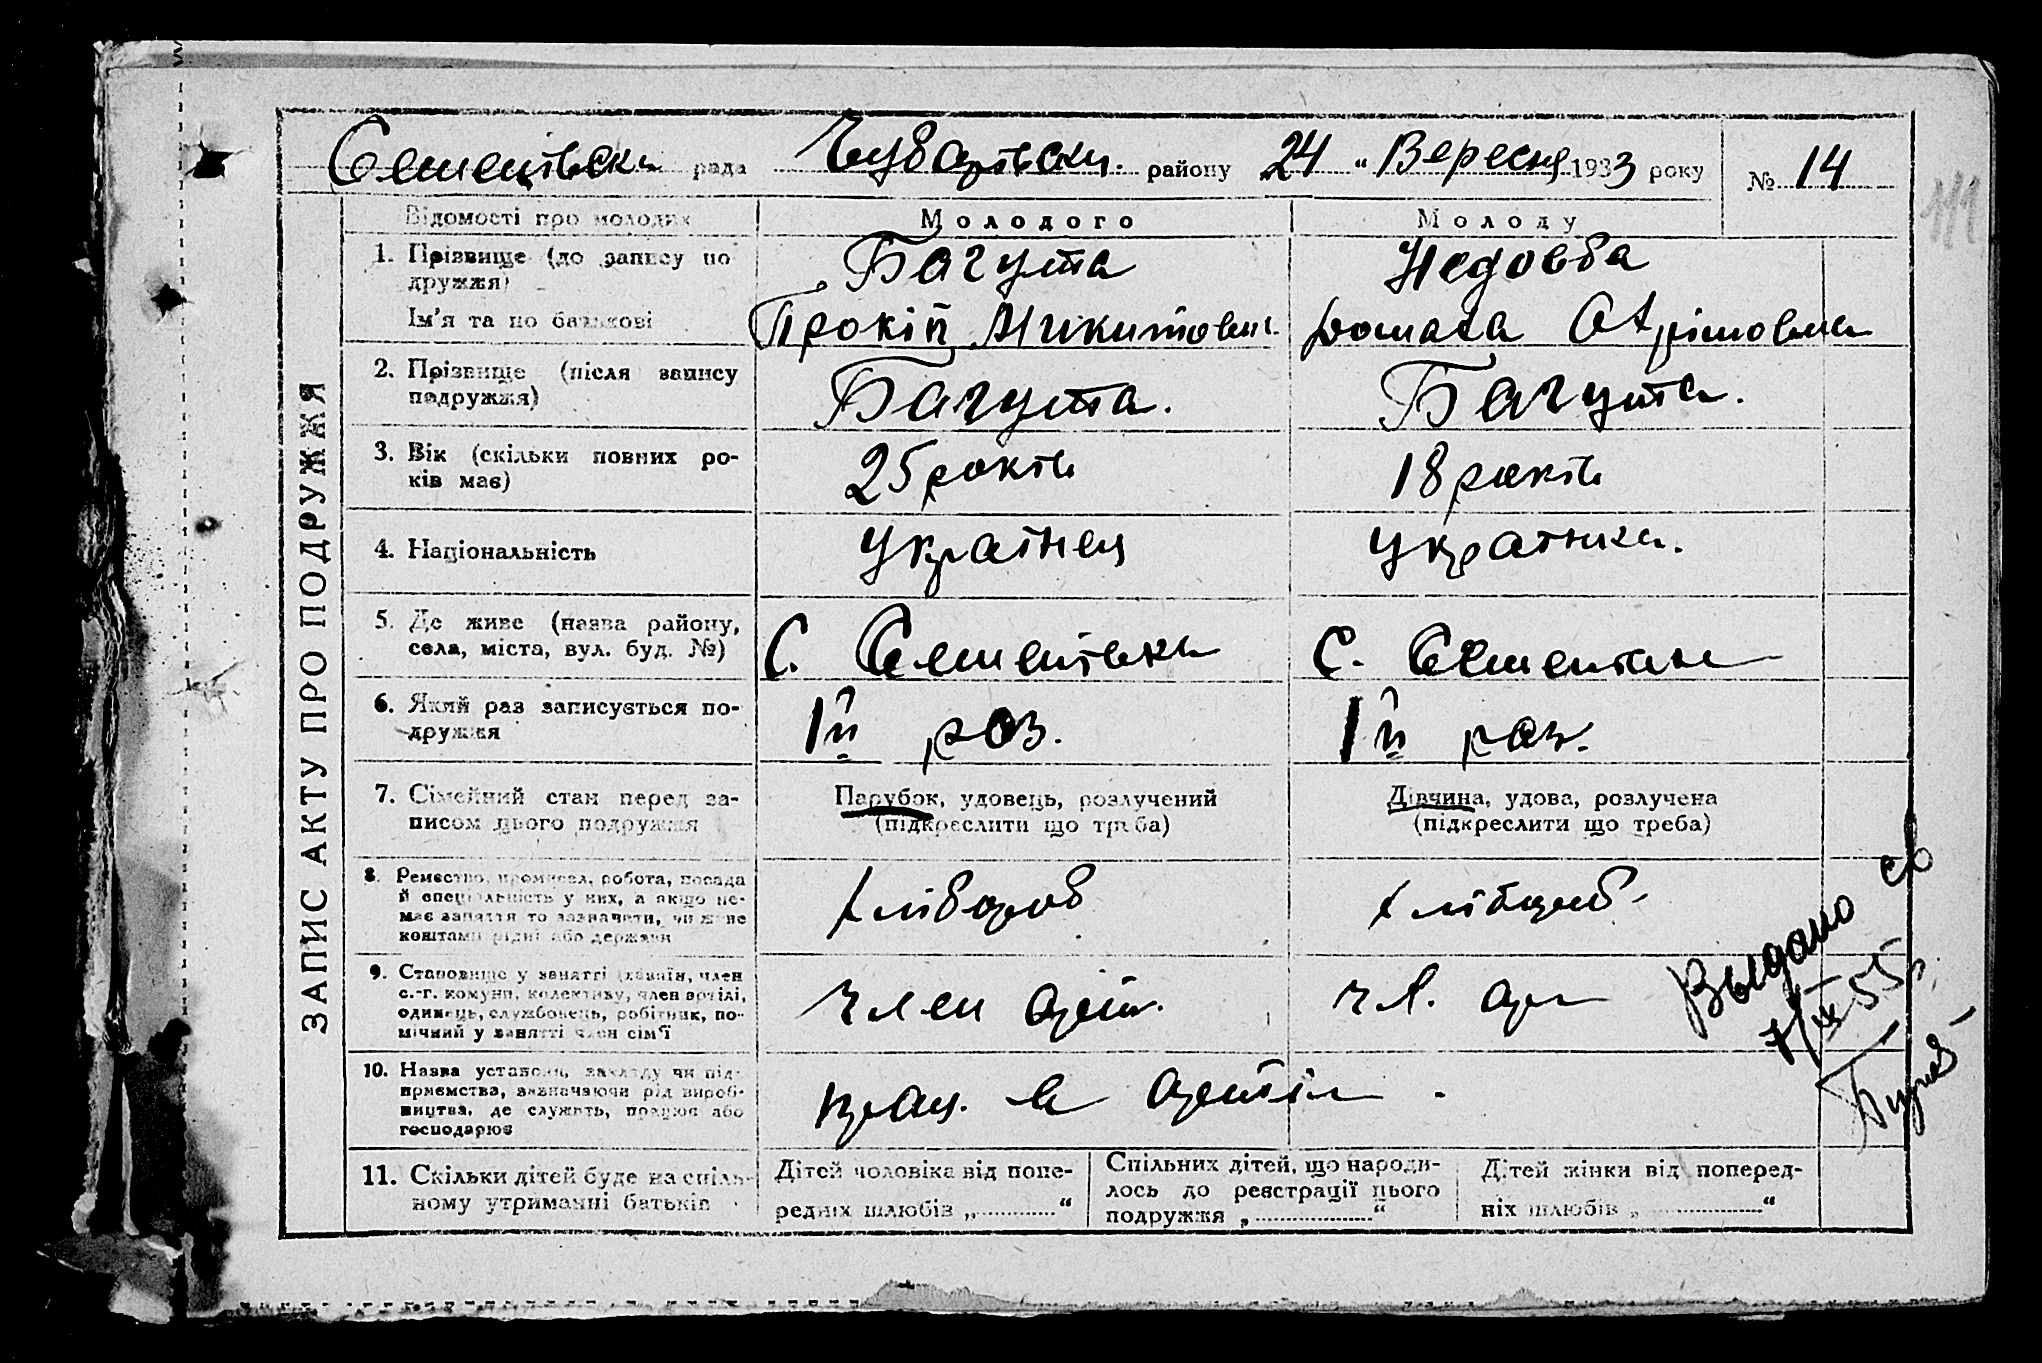 Семенівська рада Чубарівськ. району 24 " Вересня 1933 року № 14
111
ЗАПИС АКТУ ПРО ПОДРУЖЖЯ
Відомості про молодих Молодого Молоду
1. Прізвище (до запису по Багута Недовба
дружжя)
Ім'я та по батькові Прокіп Микитович Домаха
2. Прізвище (після запису Багута. Багута.
подружжя)
3. Вік (скільки повних ро- 25 років 18 років
ків має)
4. Національність Українец Українка.
5. Де живе (назва району, С. Семенівка С. Семенівка
села, міста, вул. буд. №)
6. Який раз записується по- Iй раз. Iй раз.
дружжя
7. Сімейний стан перед за- Парубок, удовець, розлучений Дівчина, удова, розлучена
писом цього подружжя (підкреслити що треба) (підкреслити що треба)
8. Ремество, промисел, робота, посада хлібороб хлібороб
й спеціяльність у них, а якщо не-
має заняття то зазначити, чи живе
коштами рідні або держави
9. Становище у занятті (хазяїн, член член арт. чл. ар
с.-г. комуни, колективу, член артілі,
одинець, службовець, робітник, по-
мічний у занятті член сім'ї
10. Назва установи, закладу чи під- прац. в артілі.
приємства, зазначаючи рід вироб-
ництва, де служить, працює або
господарює
11. Скільки дітей буде на спіль- Дітей чоловіка від попе- Спільних дітей, що народи- Дітей жінки від поперед-
ному утриманні батьків редніх шлюбів „ “ лось до реєстрації цього ніх шлюбів „ “
подружжя „ “
Выдано св
7/IX 55 г.